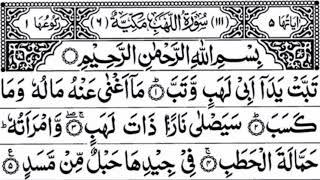 اٰیاتہا ۵ (۱۱۱) سُوْرَةُ اللَّهَبِ مَكِّيَّةٌ (۶) رکوعہا ۱
بِسْمِ اللهِ الرَّحْمٰنِ الرَّحِيْمِ
تَبَّتْ يَدَآ اَبِيْ لَهَبٍ وَّتَبَّ ۱ مَآ اَغْنٰى عَنْهُ مَالُهٗ وَمَا
كَسَبَ ۲ سَيَصْلٰى نَارًا ذَاتَ لَهَبٍ ۳ وَّامْرَاَتُهٗ
حَمَّالَةَ الْحَطَبِ ۴ فِيْ جِيْدِهَا حَبْلٌ مِّنْ مَّسَدٍ ۵